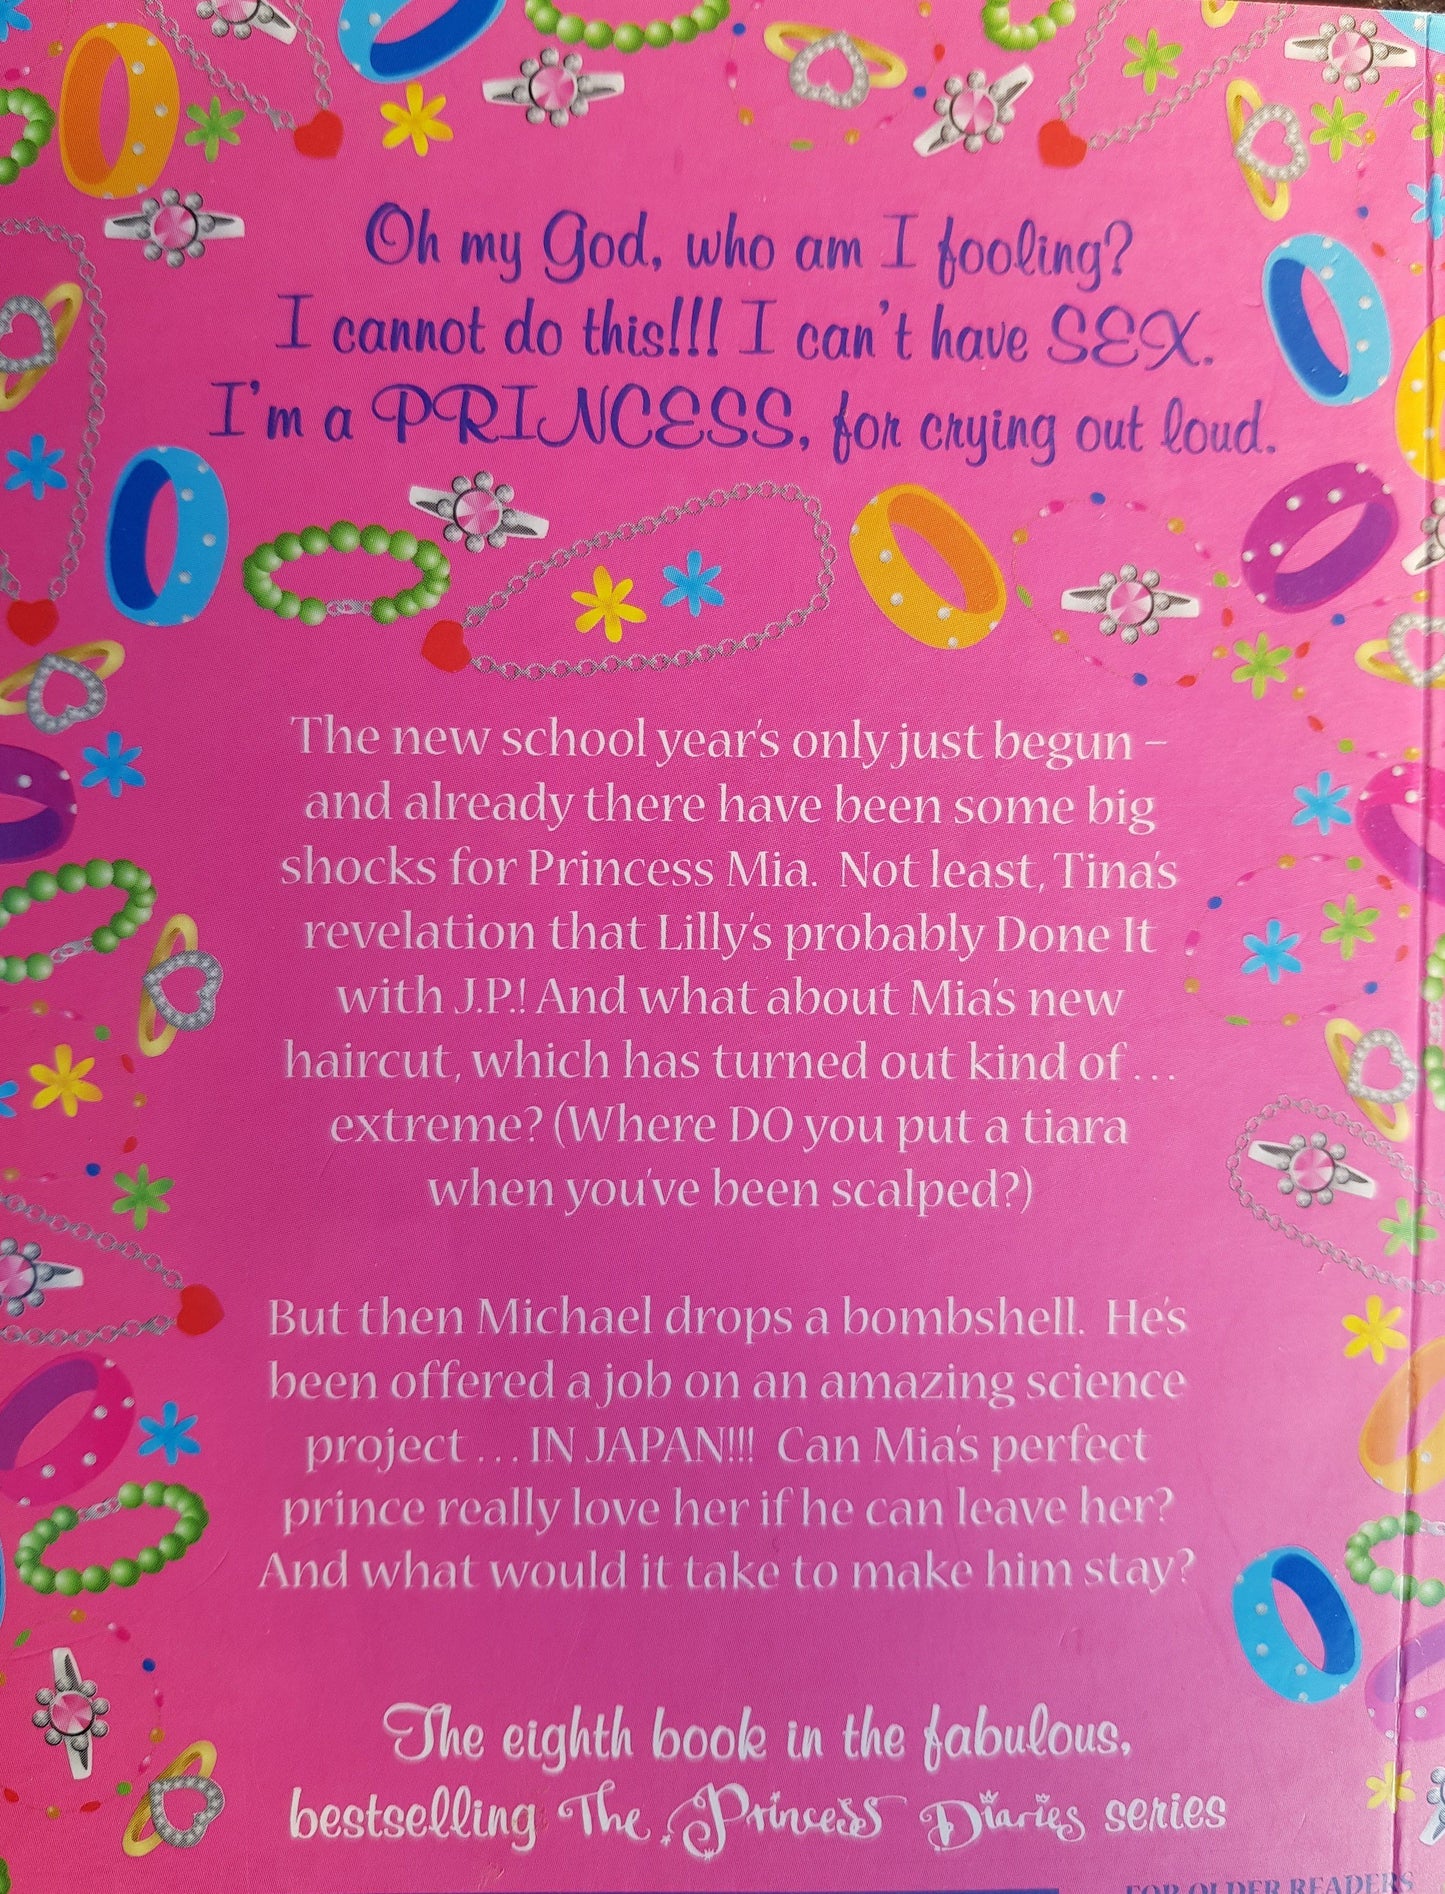 Oh my God, who am I fooling?
I cannot do this!!! I can't have SEX.
I'm a PRINCESS, for crying out loud.
The new school year's only just begun –
and already there have been some big
shocks for Princess Mia. Not least, Tina's
revelation that Lilly's probably Done It
with J.P.! And what about Mia's new
haircut, which has turned out kind of . . .
extreme? (Where DO you put a tiara
when you've been scalped?)
But then Michael drops a bombshell. He's
been offered a job on an amazing science
project . . . IN JAPAN!!! Can Mia's perfect
prince really love her if he can leave her?
And what would it take to make him stay?
The eighth book in the fabulous,
bestselling The Princess Diaries series
FOR OLDER READERS